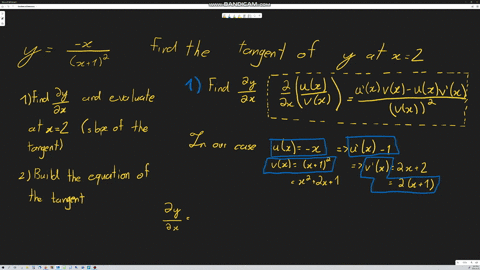 WWW.BANDICAM.COM
y = -x / (x+1)² Find the tangent of y at x=2
1) Find ∂y/∂x and evaluate
at x=2 (slope of the
tangent)
2) Build the equation of
the tangent
1) Find ∂y/∂x ∂/∂x (u(x)/v(x)) = (u'(x)v(x)-u(x)v'(x)) / (v(x))²
In our case u(x)=-x => u'(x) -1
v(x)= (x+1)² => v'(x) = 2x+2
= x²+2x+1 = 2(x+1)
∂y/∂x =